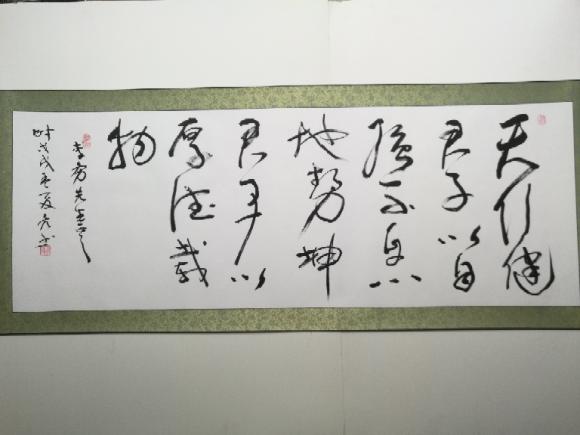 天行健
君子以自
强不息
地势坤
君子以
厚德载
物
李芳先生之
时戊戌孟夏